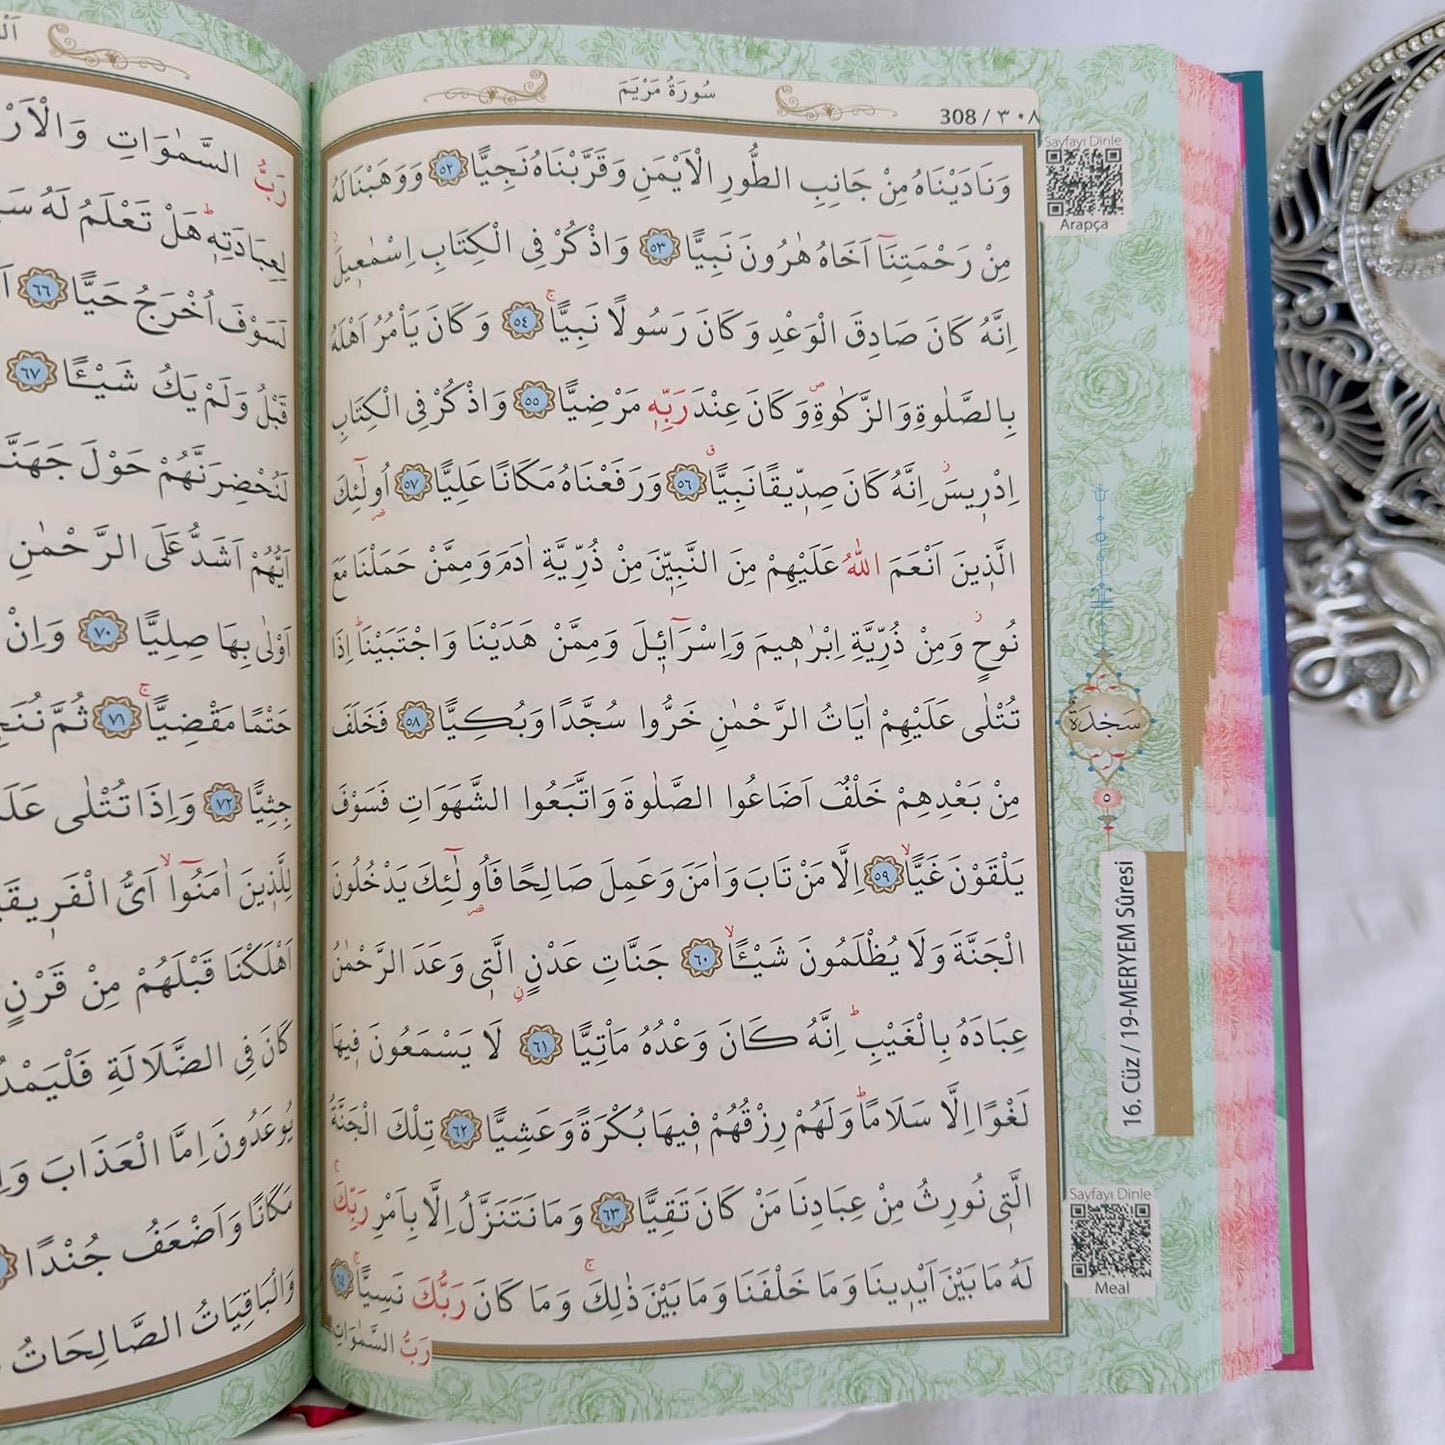 سُورَةُ مَرْيَمَ
308 / ٣٠٨
وَنَادَيْنَاهُ مِنْ جَانِبِ الطُّورِ الْاَيْمَنِ وَقَرَّبْنَاهُ نَجِيًّا ٥٢ وَوَهَبْنَا لَهُ
مِنْ رَحْمَتِنَٓا اَخَاهُ هٰرُونَ نَبِيًّا ٥٣ وَاذْكُرْ فِي الْكِتَابِ اِسْمٰعٖيلَۘ
اِنَّهُ كَانَ صَادِقَ الْوَعْدِ وَكَانَ رَسُولًا نَبِيًّاۚ ٥٤ وَكَانَ يَأْمُرُ اَهْلَهُ
بِالصَّلٰوةِ وَالزَّكٰوةِۖ وَكَانَ عِنْدَ رَبِّهٖ مَرْضِيًّا ٥٥ وَاذْكُرْ فِي الْكِتَابِ
اِدْرٖيسَۘ اِنَّهُ كَانَ صِدّٖيقًا نَبِيًّاۗ ٥٦ وَرَفَعْنَاهُ مَكَانًا عَلِيًّا ٥٧ اُولٰٓئِكَ
الَّذٖينَ اَنْعَمَ اللّٰهُ عَلَيْهِمْ مِنَ النَّبِيّٖنَ مِنْ ذُرِّيَّةِ اٰدَمَ وَمِمَّنْ حَمَلْنَا مَعَ
نُوحٍۘ وَمِنْ ذُرِّيَّةِ اِبْرٰهٖيمَ وَاِسْرَٓائٖلَ وَمِمَّنْ هَدَيْنَا وَاجْتَبَيْنَاۜ اِذَا
تُتْلٰى عَلَيْهِمْ اٰيَاتُ الرَّحْمٰنِ خَرُّوا سُجَّدًا وَبُكِيًّا ٥٨ فَخَلَفَ
مِنْ بَعْدِهِمْ خَلْفٌ اَضَاعُوا الصَّلٰوةَ وَاتَّبَعُوا الشَّهَوَاتِ فَسَوْفَ
يَلْقَوْنَ غَيًّاۙ ٥٩ اِلَّا مَنْ تَابَ وَاٰمَنَ وَعَمِلَ صَالِحًا فَاُولٰٓئِكَ يَدْخُلُونَ
الْجَنَّةَ وَلَا يُظْلَمُونَ شَيْـًٔاۙ ٦٠ جَنَّاتِ عَدْنٍ الَّتٖي وَعَدَ الرَّحْمٰنُ
عِبَادَهُ بِالْغَيْبِۜ اِنَّهُ كَانَ وَعْدُهُ مَأْتِيًّا ٦١ لَا يَسْمَعُونَ فٖيهَا
لَغْوًا اِلَّا سَلَامًاۜ وَلَهُمْ رِزْقُهُمْ فٖيهَا بُكْرَةً وَعَشِيًّا ٦٢ تِلْكَ الْجَنَّةُ
الَّتٖي نُورِثُ مِنْ عِبَادِنَا مَنْ كَانَ تَقِيًّا ٦٣ وَمَا نَتَنَزَّلُ اِلَّا بِاَمْرِ رَبِّكَۚ
لَهُ مَا بَيْنَ اَيْدٖينَا وَمَا خَلْفَنَا وَمَا بَيْنَ ذٰلِكَۚ وَمَا كَانَ رَبُّكَ نَسِيًّاۚ ٦٤
رَبُّ السَّمٰوَاتِ
Sayfayı Dinle
Arapça
سَجْدَةٌ
٥
16. Cüz / 19-MERYEM Sûresi
Sayfayı Dinle
Meal
رَبُّ السَّمٰوَاتِ وَالْاَرْ
لِعِبَادَتِهٖۜ هَلْ تَعْلَمُ لَهُ
لَسَوْفَ اُخْرَجُ حَيًّا ٦٦
قَبْلُ وَلَمْ يَكُ شَيْـًٔا ٦٧
لَنُحْضِرَنَّهُمْ حَوْلَ جَهَنَّ
اَيُّهُمْ اَشَدُّ عَلَى الرَّحْمٰنِ
اَوْلٰى بِهَا صِلِيًّا ٧٠ وَاِنْ
حَتْمًا مَقْضِيًّاۚ ٧١ ثُمَّ نُنَجّ
جِثِيًّا ٧٢ وَاِذَا تُتْلٰى عَلَ
لِلَّذٖينَ اٰمَنُٓواۙ اَيُّ الْفَرٖيقَ
اَهْلَكْنَا قَبْلَهُمْ مِنْ قَرْنٍ
كَانَ فِي الضَّلَالَةِ فَلْيَمْدُ
يُوعَدُونَ اِمَّا الْعَذَابَ وَاِ
مَكَانًا وَاَضْعَفُ جُنْدًا
وَالْبَاقِيَاتُ الصَّالِحَاتُ